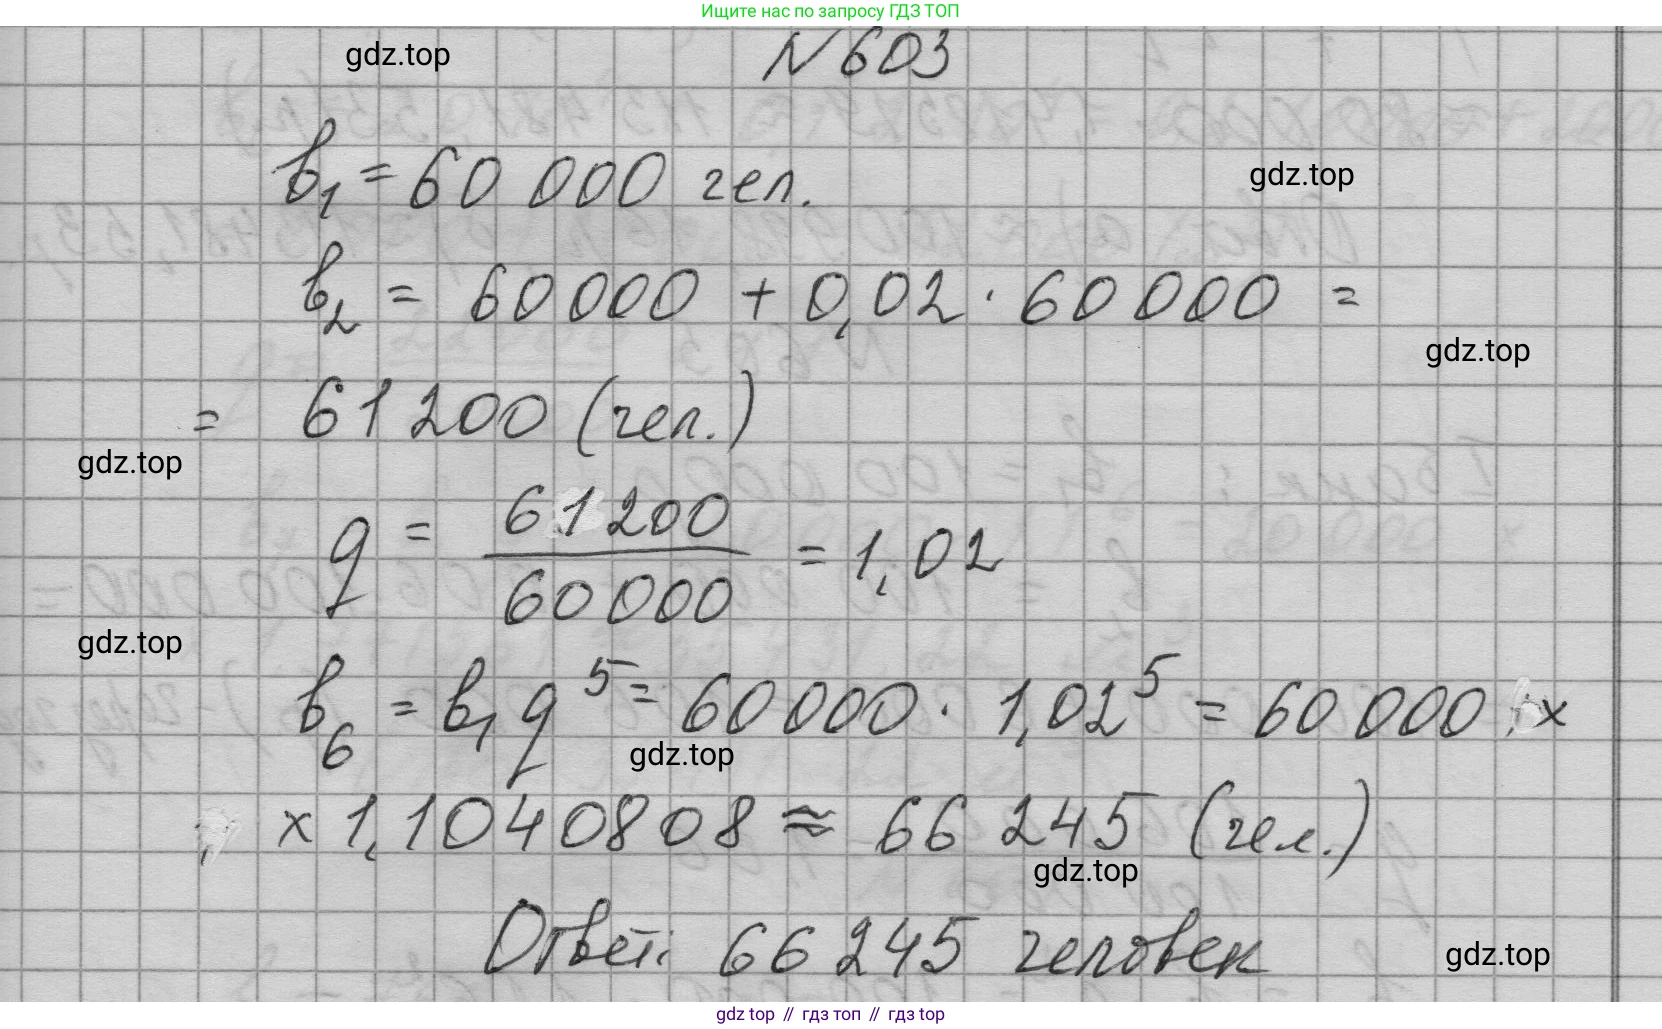 Ищите нас по запросу ГДЗ ТОП
gdz.top
N 603
b₁ = 60 000 чел.
gdz.top
b₂ = 60 000 + 0,02 · 60 000 =
gdz.top
= 61 200 (чел.)
gdz.top
q = 61 200 / 60 000 = 1,02
gdz.top
b₆ = b₁ q⁵ = 60 000 · 1,02⁵ = 60 000 ×
gdz.top
× 1,1040808 ≈ 66 245 (чел.)
gdz.top
Ответ: 66 245 человек
gdz.top
gdz top // гдз топ // гдз top